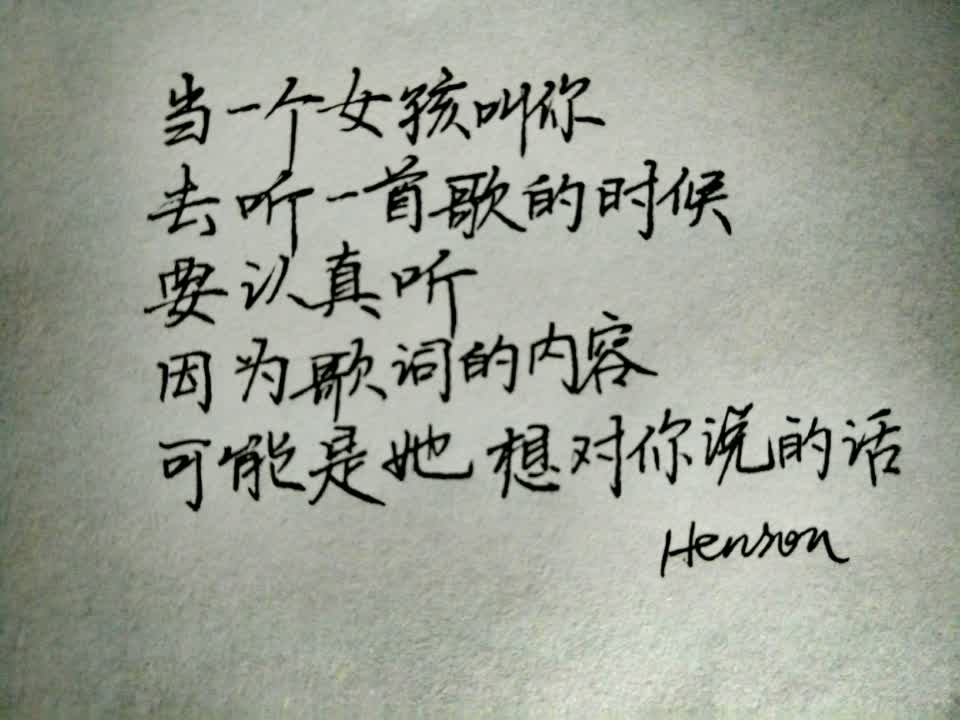 当一个女孩叫你
去听一首歌的时候
要认真听
因为歌词的内容
可能是她想对你说的话
Henson